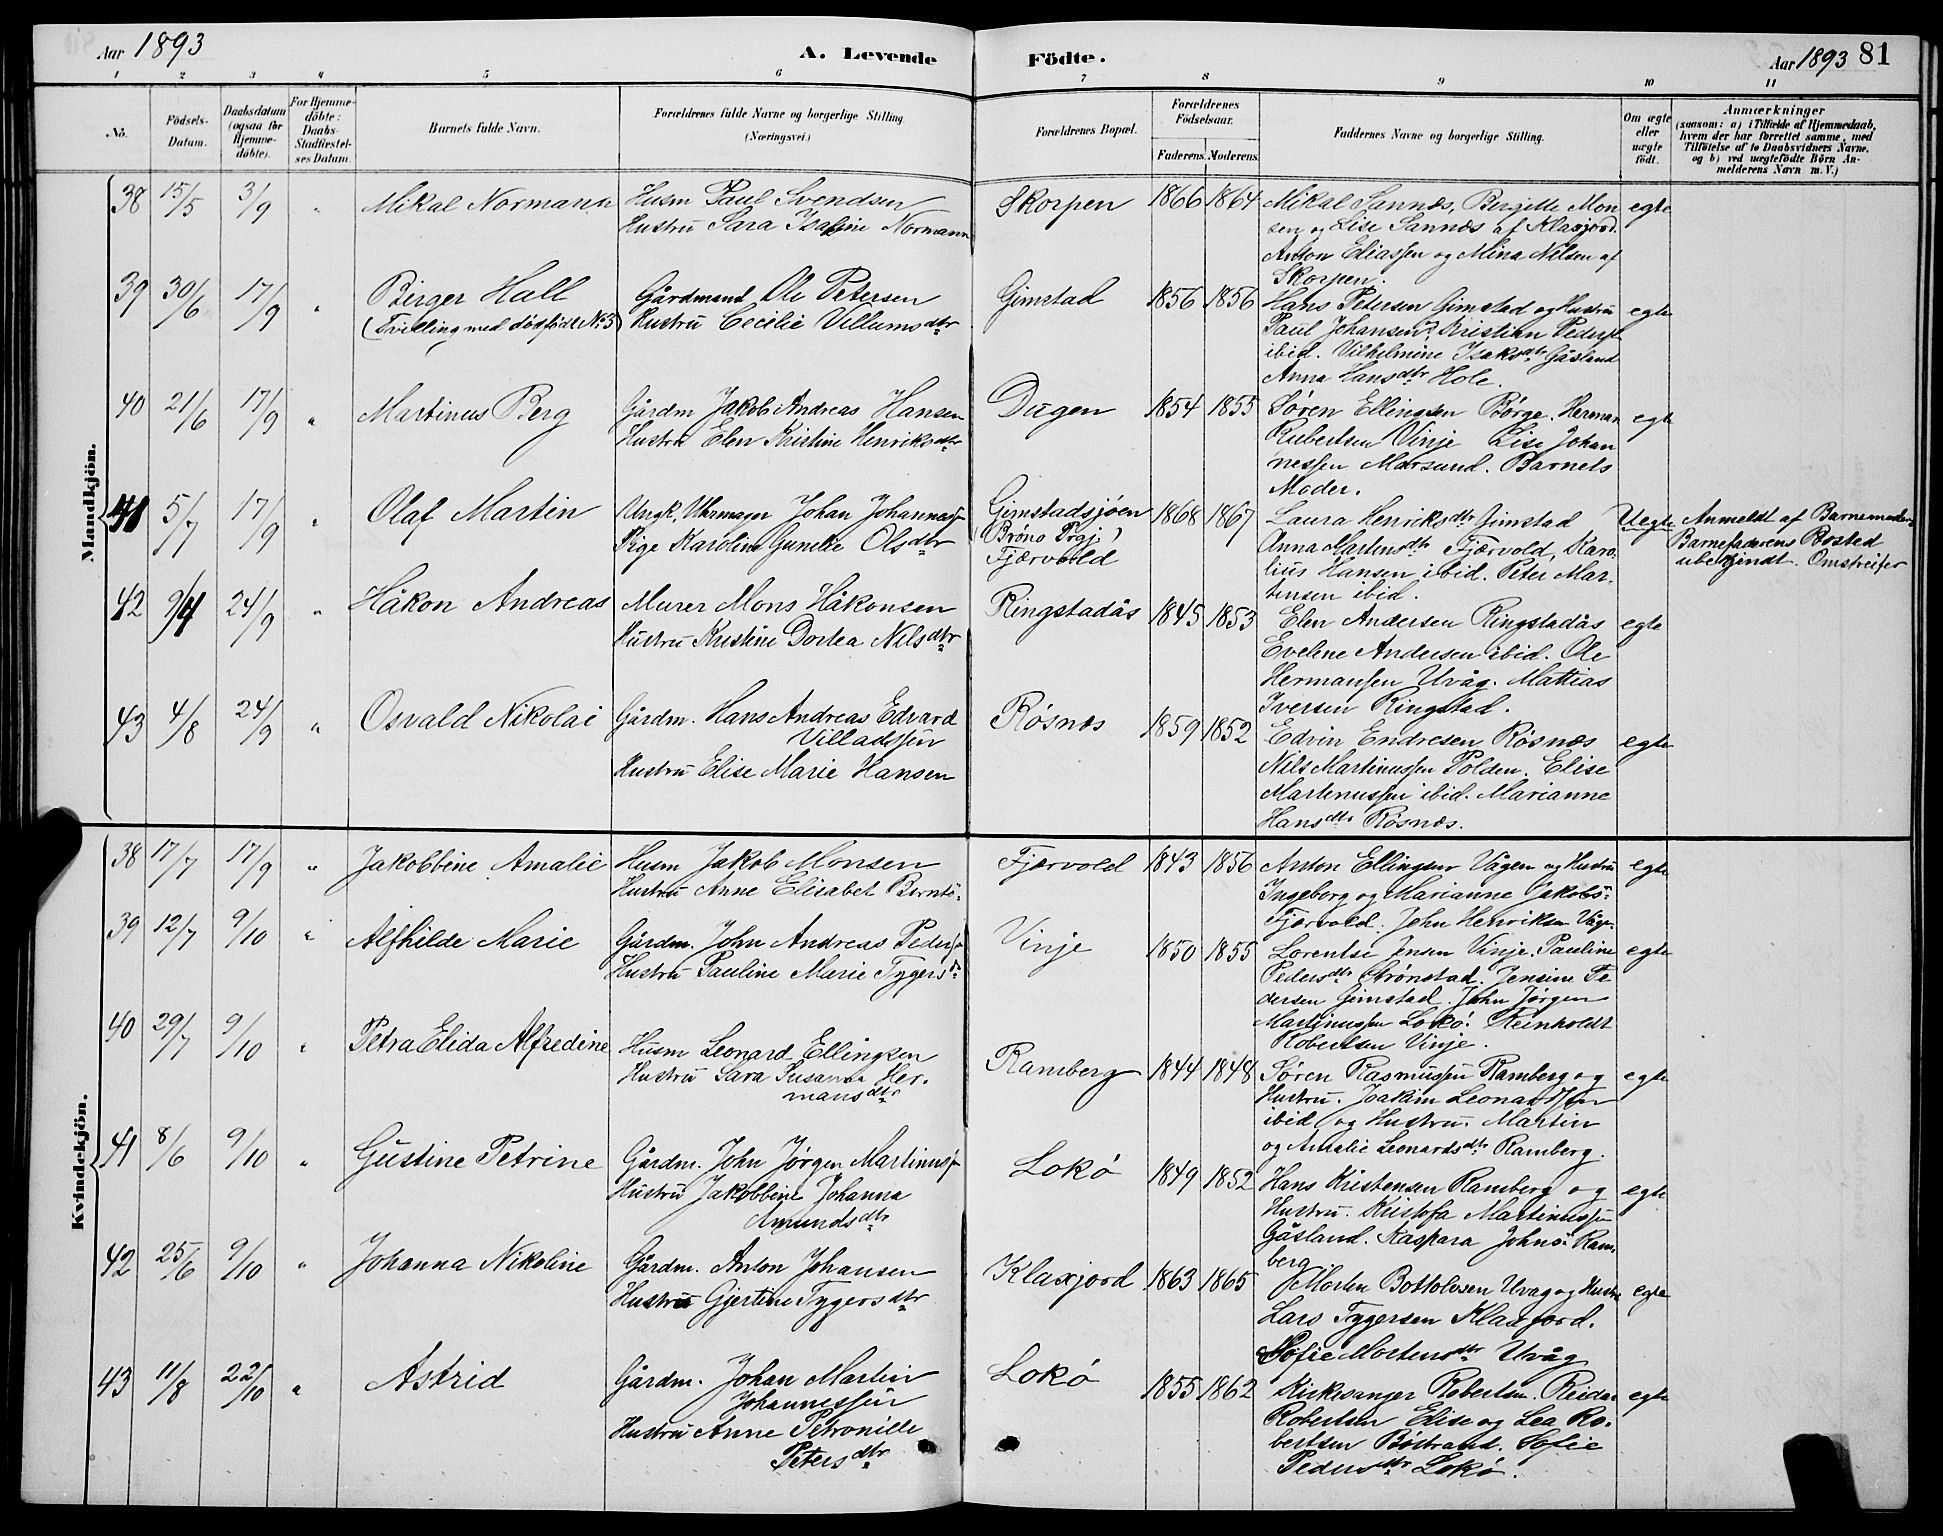 Aar 1893
A. Levende
Födte.
Aar 1893
81
1 2 3 4 5 6 7 8 9 10 11
No.
Födsels-
Datum.
Daabsdatum
(ogsaa for
Hjemme-
döbte).
For Hjemme-
döbte:
Daabs-
Stadfæstel-
ses Datum.
Barnets fulde Navn.
Forældrenes fulde Navne og borgerlige Stilling
(Næringsvei.)
Forældrenes Bopæl.
Forældrenes
Födselsaar.
Faderens. Moderens.
Faddernes Navne og borgerlige Stilling.
Om ægte
eller
uægte
födt.
Anmærkninger
(saasom: a) i Tilfælde af Hjemmedaab,
hvem der har forrettet samme, med
Tilföielse af to Daabsvidners Navne,
og b) ved uægtefödte Börn An-
melderens Navn m. V.)
Mandkjön.
38 15/5 3/9 " Mikal Normann
Husm Paul Svendsen
Hustru Sara Isaline Normann
Skorpen 1866 1864
Mikal Sannæs, Bergette Mon
sen og Lise Sannæs af Klaxjord.
Anton Eliassen og Mina Nilsen af
Skorpen.
egte
39 30/6 17/9 " Birger Hall
(Tvilling med dødfødt No 3)
Gårdmand Ole Petersen
Hustru Cecilie Villumsdtr
Gimstad 1856 1856
Hans Petersen Gimstad og Hustru
Paul Johansen, Kristian Peders
ibid. Vilhelmine Isaksdtr Gåsland
Anna Hansdtr Hole.
egte
40 21/6 17/9 " Martinus Berg
Gårdm Jakob Andreas Hansen
Hustru Elen Kristine Henriksdtr
Dugen 1854 1855
Søren Ellingsen Börge. Herman
Rubertsen Vinje Lise Johan
nessen Marsund. Barnets
Moder.
egte
41 5/7 17/9 " Olaf Martin
Ungk. Uhrmager Johan Johanness
Pige Karoline Gunelie Olsdtr
Gimstadsjøen
(Brönø Prgj)
Fjærvold
1868 1867
Laura Henriksdtr Gimstad
Anna Martensdtr Fjærvold, Karo
lius Hansen ibid. Peter Mar
tensen ibid.
Uegte
Anmeldt af Barnemoder.
Barnefaderens Bosted
ubekjendt. Omstreifer
42 9/4 24/9 " Håkon Andreas
Murer Mons Håkonsen
Hustru Kristine Dortea Nilsdtr
Ringstadås 1845 1853
Elen Andersen Ringstadås
Evelene Andersen ibid. Ole
Hermansen Uvåg. Mattias
Iversen Ringstad.
egte
43 4/8 24/9 " Osvald Nikolai
Gårdm. Hans Andreas Edvard
Villadssen
Hustru Elise Marie Hansen
Røsnæs 1859 1852
Edvin Endresen Røsnæs
Nils Martinussen Polden. Elise
Martenussen ibid. Marianne
Hansdtr Røsnæs.
egte
Kvindekjön.
38 17/7 17/9 " Jakobbine Amalie
Husm Jakob Monsen
Hustru Anne Elisabet Bernts
Fjærvold 1843 1856
Anton Ellingsen Vågen og Hustru
Ingeborg og Marianne Jakobs
Fjærvold. John Henriksen Vågen
egte
39 12/7 9/10 " Alfhilde Marie
Gårdm. John Andreas Peders
Hustru Pauline Marie Tygersd
Vinje 1850 1855
Lorentse Jensen Vinje. Pauline
Pedersdtr Strønstad. Jensine Pe
dersen Gimstad. John Jørgen
Martinussen Lokø. Reinholdt
Robertsen Vinje.
egte
40 29/7 9/10 " Petra Elida Alfredine
Husm Leonard Ellingsen
Hustru Sara Susanna Her.
mansdtr
Ramberg 1844 1848
Søren Rasmussen Ramberg og
Hustru. Joakim Leonardsen
ibid og Hustru. Martin
og Amalie Leonardsdtr Ramberg.
egte
41 8/6 9/10 " Gustine Petrine
Gårdm. John Jørgen Martinuss
Hustru Jakobbine Johanna
Amundsdtr
Lokø 1849 1852
Hans Kristensen Ramberg og
Hustru. Kristofa Martinussen
Gåsland. Kaspara Johns Ram.
berg
egte
42 25/6 9/10 " Johanna Nikoline
Gårdm. Anton Johansen
Hustru Gjertine Tygersdtr
Klaxjord 1863 1865
Morten Bottolvsen Uvag og Hustru
Lars Tygersen Klaxjord.
Sofie Mortensdtr Uvåg
egte
43 11/8 22/10 " Astrid
Gårdm. Johan Martin
Johannessen
Hustru Anne Petronille
Petersdtr
Lokø 1855 1862
Kirkesanger Robertsen. Reidar
Robertsen Elise og Lea Ro.
bertsen Böstrand. Sofie
Pedersdtr Lokø.
egte